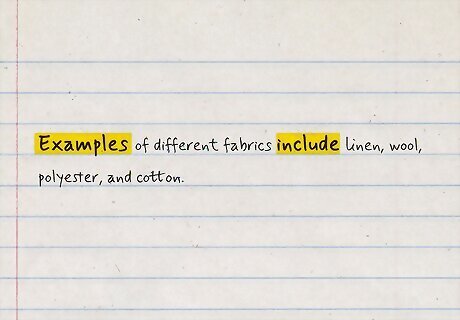 Examples of different fabrics include linen, wool,
polyester, and cotton.